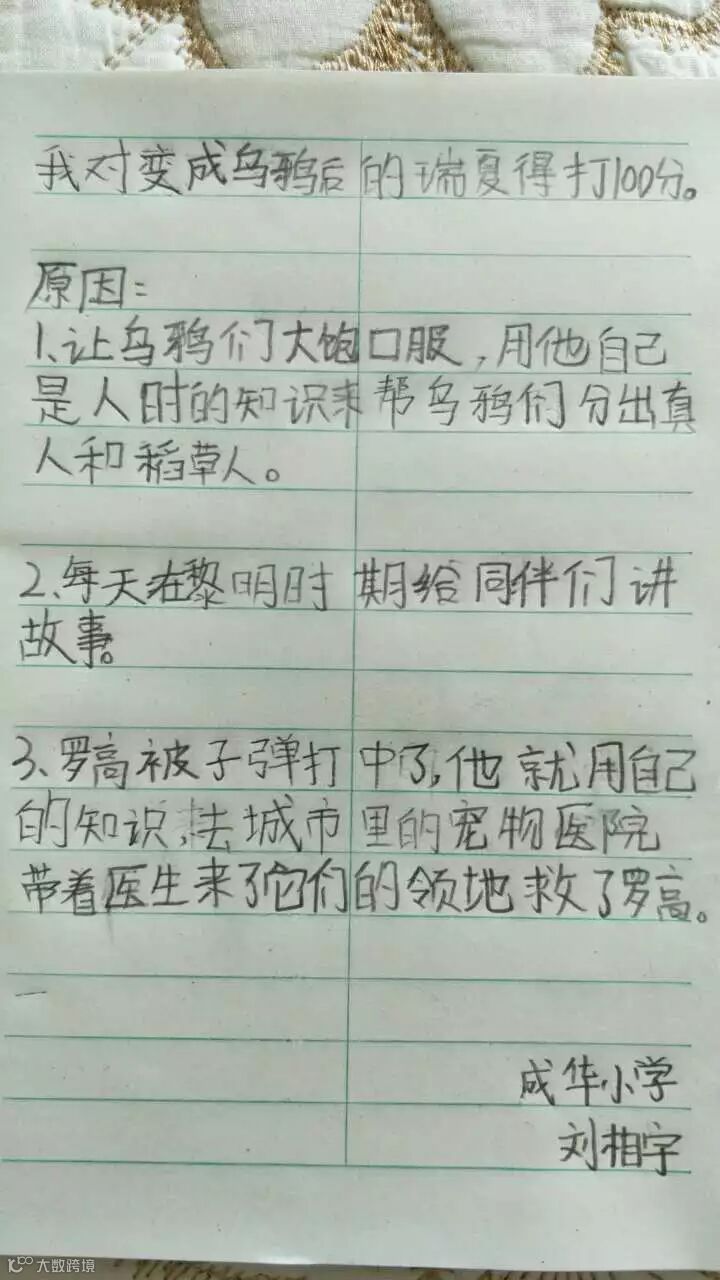 我对变成乌鸦后的瑞夏得打100分。
原因:
1、让乌鸦们大饱口服,用他自己
是人时的知识来帮乌鸦们分出真
人和稻草人。
2、每天在黎明时期给同伴们讲
故事。
3、罗高被子弹打中了,他就用自己
的知识,去城市里的宠物医院
带着医生来了它们的领地救了罗高。
成华小学
刘相宇
大数跨境